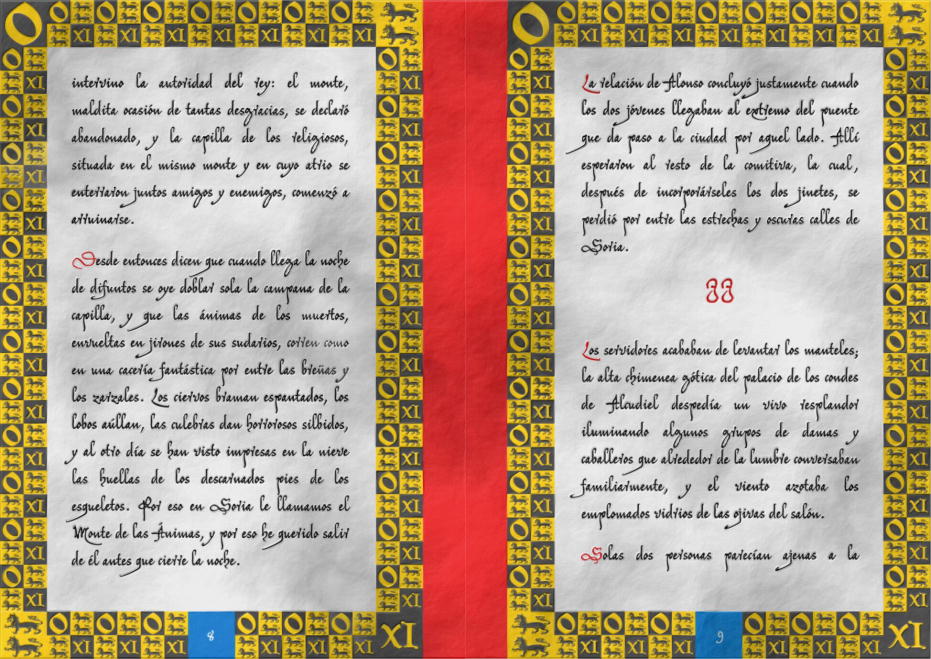 intervino la autoridad del rey: el monte,
maldita ocasión de tantas desgracias, se declaró
abandonado, y la capilla de los religiosos,
situada en el mismo monte y en cuyo atrio se
enterraron juntos amigos y enemigos, comenzó a
arruinarse.
Desde entonces dicen que cuando llega la noche
de difuntos se oye doblar sola la campana de la
capilla, y que las ánimas de los muertos,
envueltas en jirones de sus sudarios, corren como
en una cacería fantástica por entre las breñas y
los zarzales. Los ciervos braman espantados, los
lobos aúllan, las culebras dan horrorosos silbidos,
y al otro día se han visto impresas en la nieve
las huellas de los descarnados pies de los
esqueletos. Por eso en Soria le llamamos el
Monte de las Ánimas, y por eso he querido salir
de él antes que cierre la noche.
8
La relación de Alonso concluyó justamente cuando
los dos jóvenes llegaban al extremo del puente
que da paso a la ciudad por aquel lado. Allí
esperaron al resto de la comitiva, la cual,
después de incorporárseles los dos jinetes, se
perdió por entre las estrechas y oscuras calles de
Soria.
II
Los servidores acababan de levantar los manteles;
la alta chimenea gótica del palacio de los condes
de Alcudiel despedía un vivo resplandor
iluminando algunos grupos de damas y
caballeros que alrededor de la lumbre conversaban
familiarmente, y el viento azotaba los
emplomados vidrios de las ojivas del salón.
Solas dos personas parecían ajenas a la
9
XI
XI